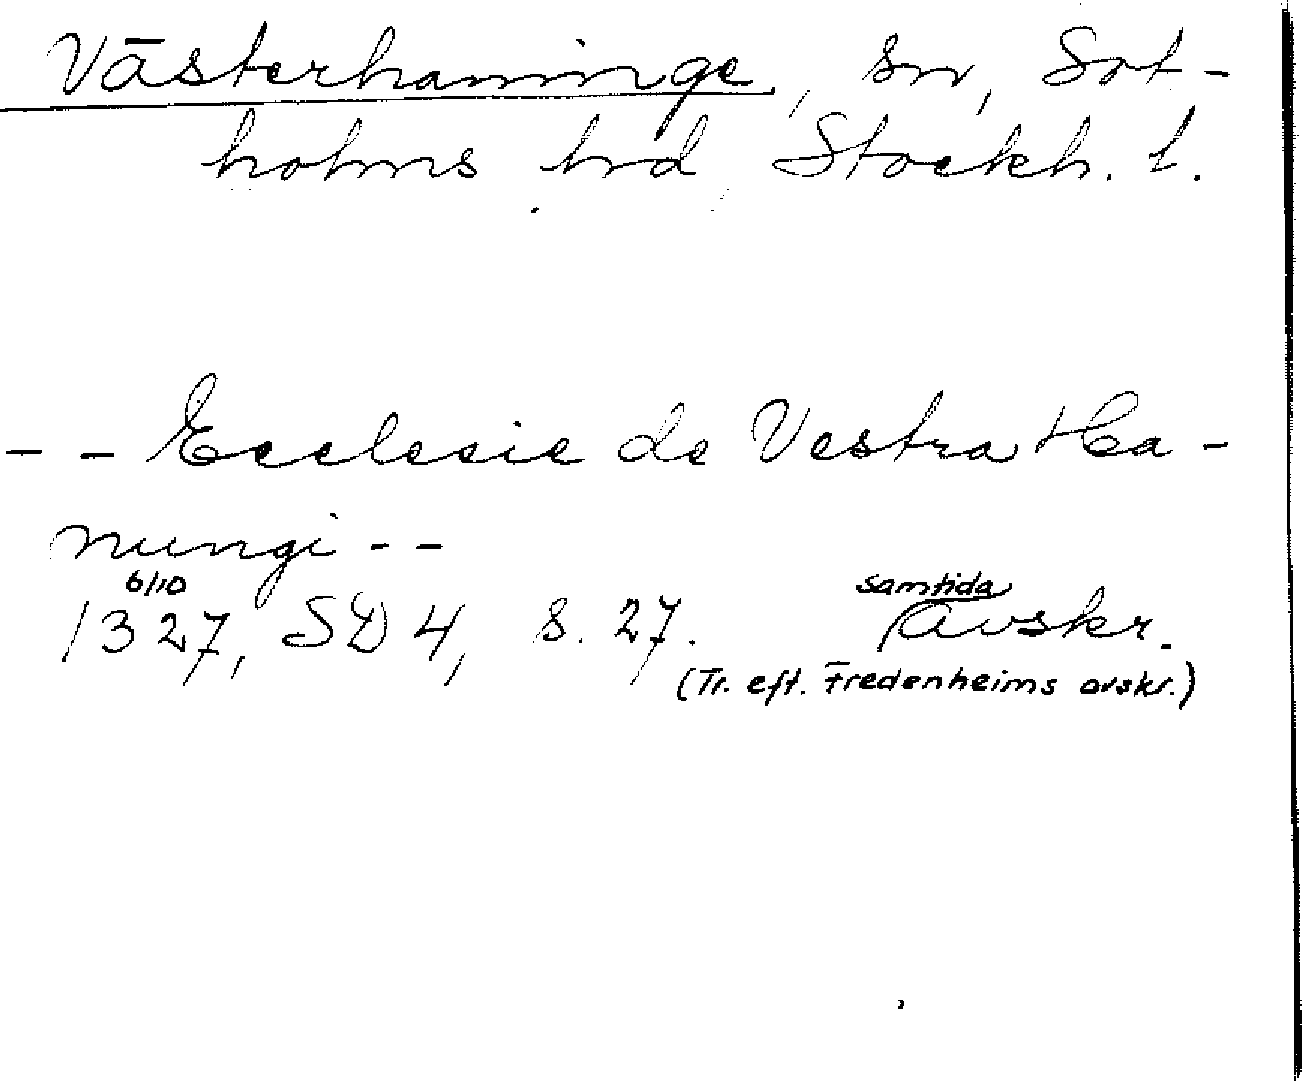 Västerhaninge, sn, Sot-
holms hd, Stockh. l.
- - Ecclesie de Vestra Ha-
nungi - -
6/10 samtida
1327, SD 4, s. 27. avskr.
(Tr. eft. Fredenheims avskr.)